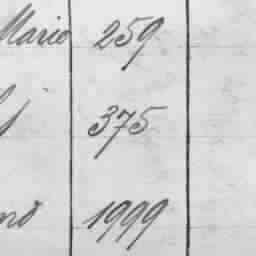 Mario 259
375
1999